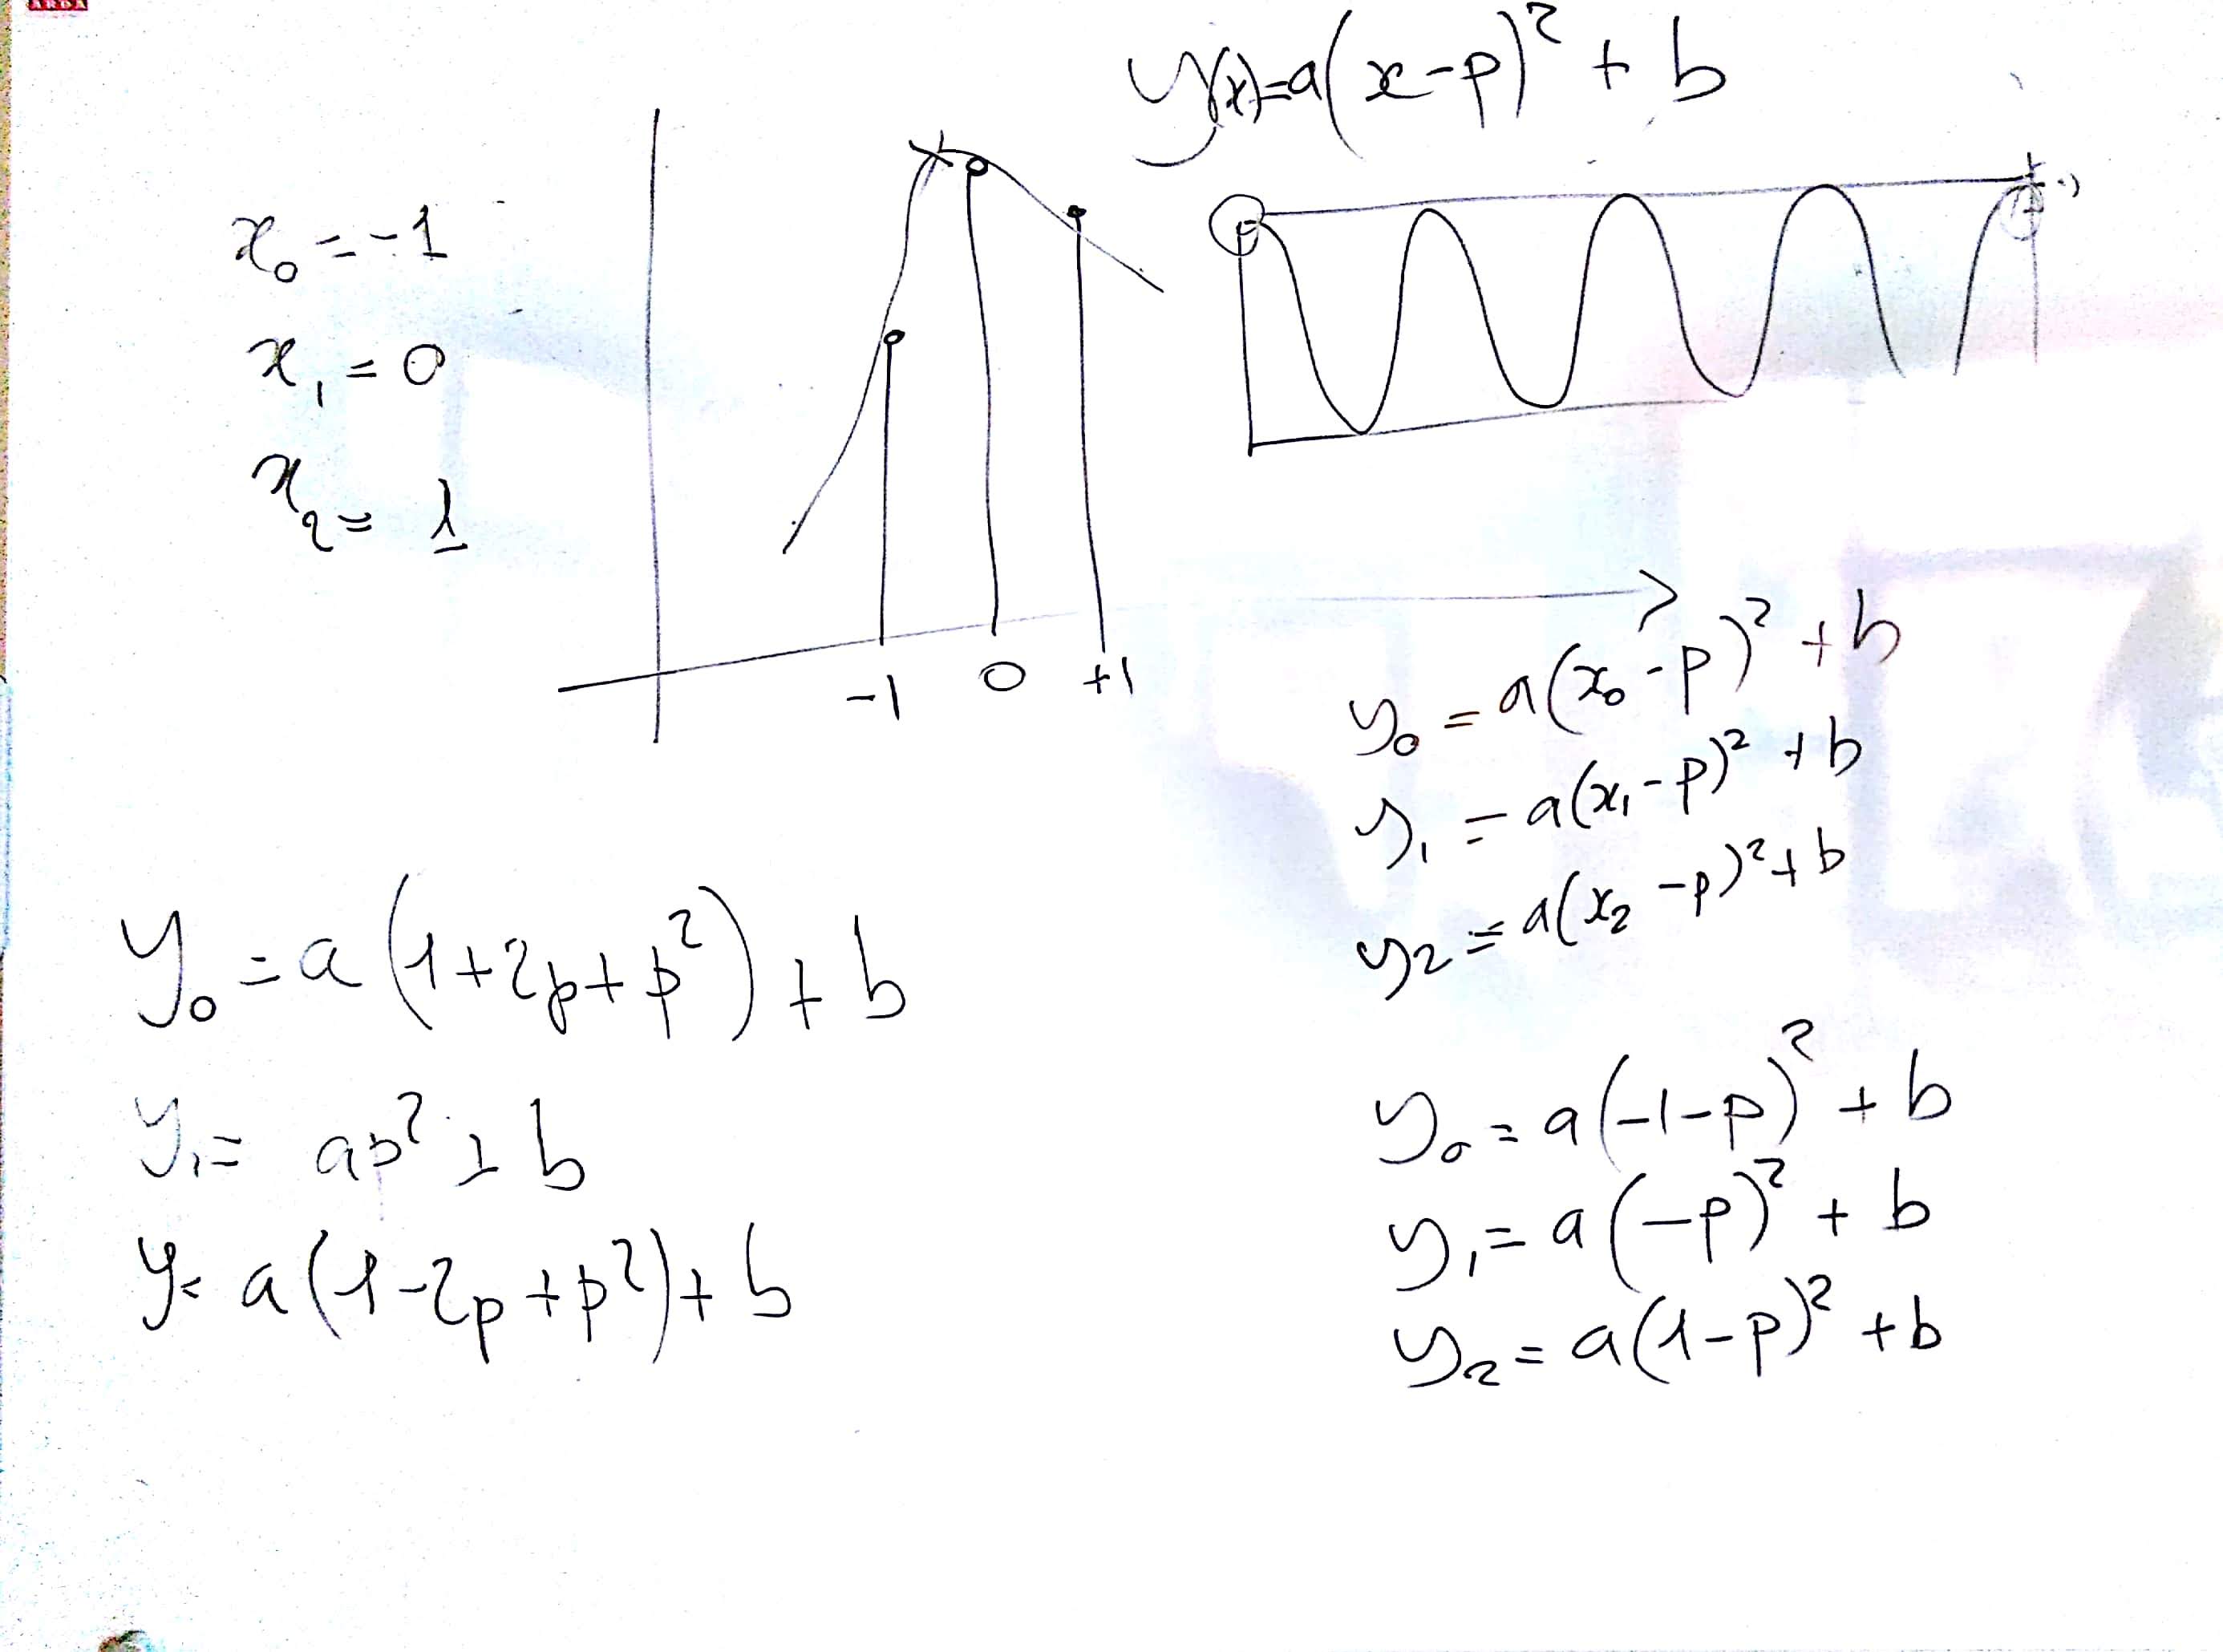 ARDA
y(x)=a(x-p)² + b
x₀ = -1
x₁ = 0
x₂ = 1
-1 0 +1
y₀ = a(x₀-p)² + b
y₁ = a(x₁-p)² + b
y₂ = a(x₂-p)² + b
y₀ = a(1+2p+p²) + b
y₁ = ap² + b
y= a(1-2p+p²) + b
y₀ = a(-1-p)² + b
y₁ = a(-p)² + b
y₂ = a(1-p)² + b